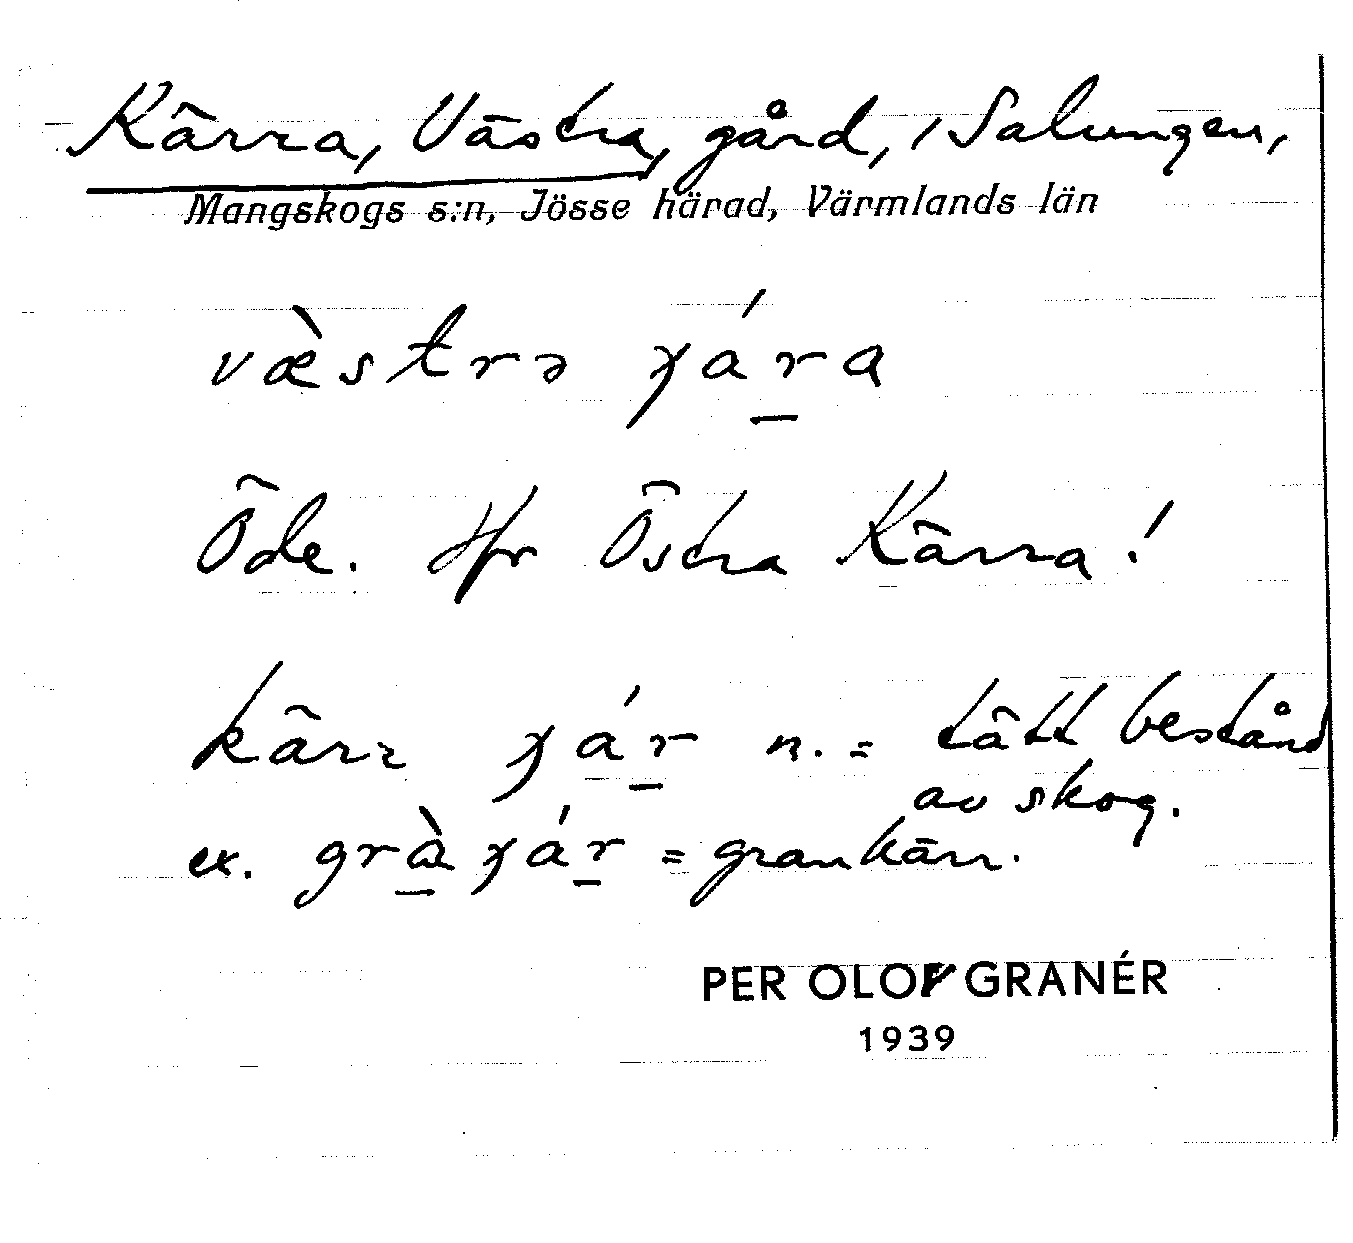 Kärra, Västra, gård, i Salungen,
Mangskogs s:n, Jösse härad, Värmlands län
væ̀strə ɟára̱
Öde. Jfr Östra Kärra!
kärr ɟáṟ n. = tätt bestånd
av skog.
ex. grà̱ɟáṟ = grankärr.
PER OLOF GRANÉR
1939